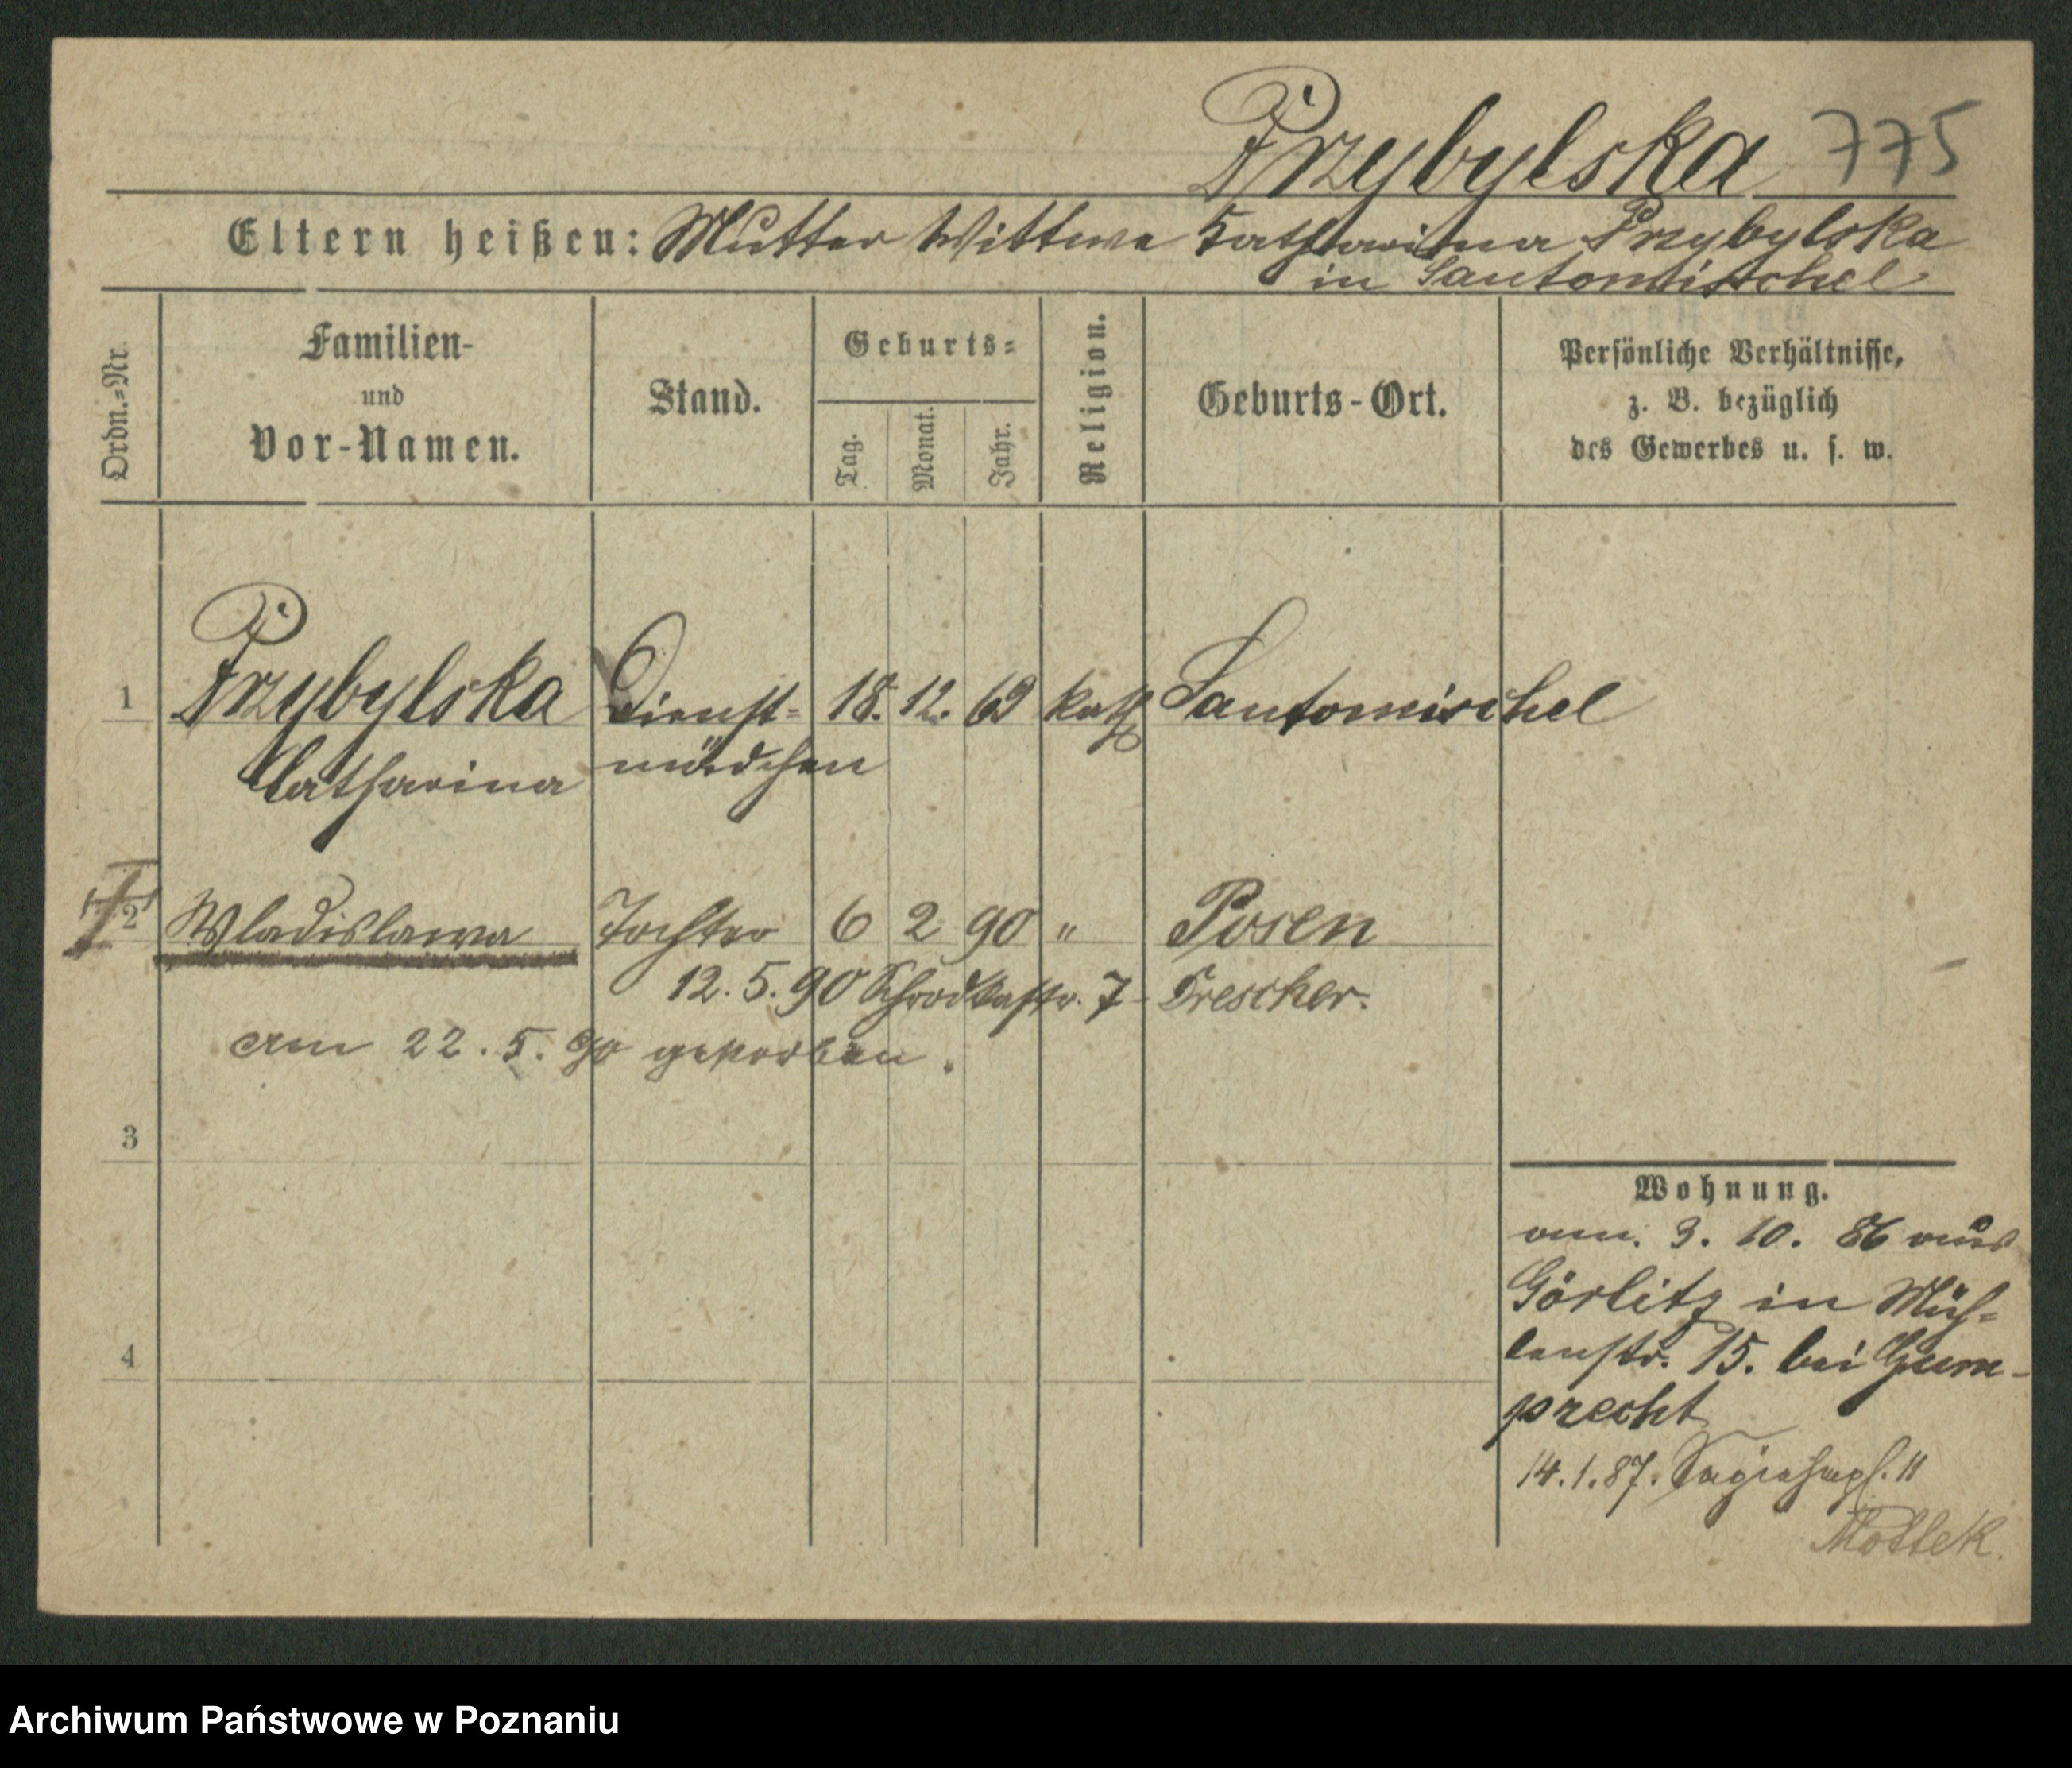 Przybylska 775
Eltern heißen: Mutter Wittwe Katharina Przybylska
in Santomischel
Ordn.=Nr.
Familien-
und
Vor-Namen.
Stand.
Geburts=
Tag.
Monat.
Jahr.
Religion.
Geburts-Ort.
Persönliche Verhältnisse,
z. B. bezüglich
des Gewerbes u. s. w.
1 Przybylska Dienst= 18. 12. 69 kath Santomischel
Catharina mädchen
2 Wladislawa Tochter 6 2 90 " Posen
12. 5. 90 Schrodkastr. 7 Trescher.
am 22. 5. 90 gestorben.
3
Wohnung.
3. 10. 86 aus
Görlitz in Müh=
4
lenstr. 15. bei Gum-
precht
14. 1. 87. Sapiehapl. 11
Mottek.
Archiwum Państwowe w Poznaniu